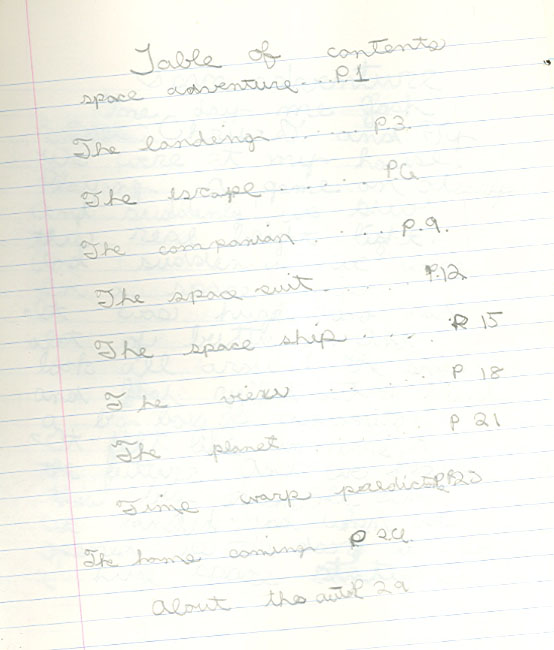 Table of contents
space adventure.. P1
The landing ...... P3.
The escape ...... P6
The companian .... P.9.
The space suit .... P.12
The space ship .... P 15
The view ..... P 18
The planet P 21
Time warp
The home coming P 26.
About the P 29